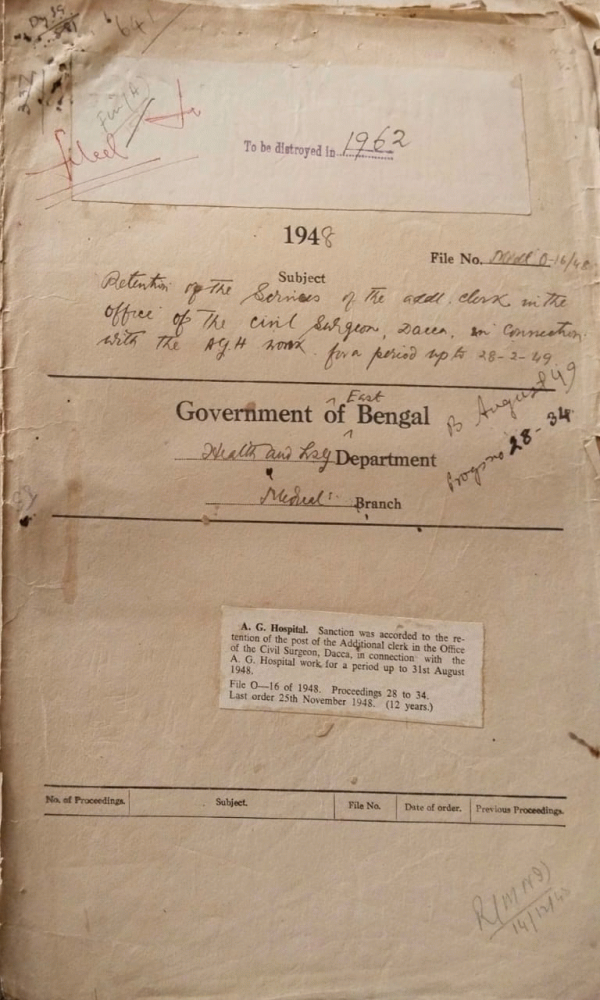 64
filed
To be distroyed in 1962
1948
File No. Medl O-16/48
Subject
Retention of the Services of the addl. clerk in the
office of the civil Surgeon, Dacca, in connection
with the AGH work for a period up to 28-2-49.
B August 49
Progs no 28-34
East
Government of Bengal
Health and LSG Department
Medical Branch
A. G. Hospital. Sanction was accorded to the re-
tention of the post of the Additional clerk in the Office
of the Civil Surgeon, Dacca, in connection with the
A. G. Hospital work for a period up to 31st August
1948.
File O—16 of 1948. Proceedings 28 to 34.
Last order 25th November 1948. (12 years.)
No. of Proceedings. Subject. File No. Date of order. Previous Proceedings.